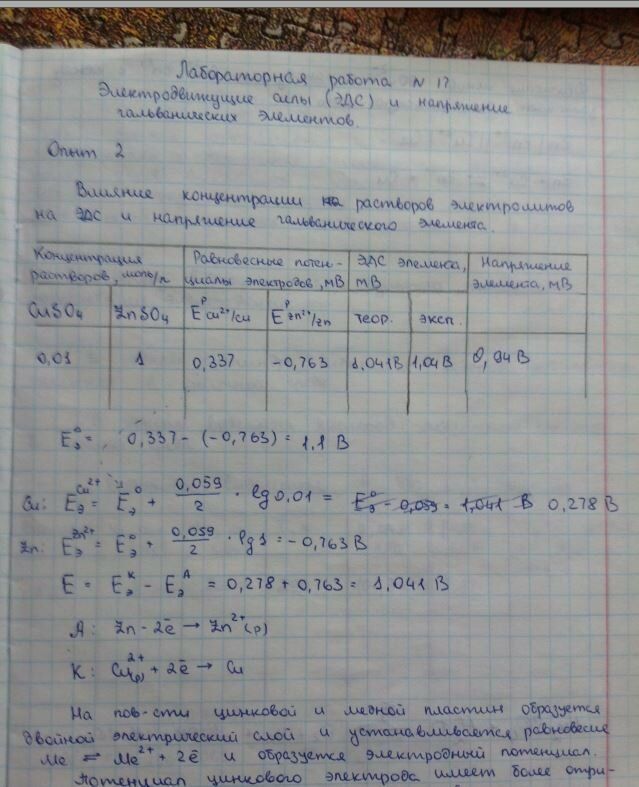 Лабораторная работа N 17
Электродвижущие силы (ЭДС) и напряжение
гальванических элементов.
Опыт 2
Влияние концентрации растворов электролитов
на ЭДС и напряжение гальванического элемента.
Концентрация растворов, моль/л | Равновесные потенциалы электродов, мВ | ЭДС элемента, мВ | Напряжение элемента, мВ
CuSO₄ | ZnSO₄ | Eᴾ Cu²⁺/Cu | Eᴾ Zn²⁺/Zn | теор. | эксп.
0,01 | 1 | 0,337 | -0,763 | 1,041 В | 1,04 В | 0,94 В
Eэ⁰ = 0,337 - (-0,763) = 1,1 В
Cu: Eэ^Cu²⁺ = Eэ⁰ + 0,059/2 · lg 0,01 = Eэ⁰ - 0,059 = 1,041 В 0,278 В
Zn: Eэ^Zn²⁺ = Eэ⁰ + 0,059/2 · lg 1 = -0,763 В
E = Eэᴷ - Eэᴬ = 0,278 + 0,763 = 1,041 В
А: Zn - 2ē → Zn²⁺(р)
К: Cu²⁺(р) + 2ē → Cu
На пов-сти цинковой и медной пластин образуется
двойной электрический слой и устанавливается равновесие
Me ⇌ Me²⁺ + 2ē и образуется электродный потенциал.
Потенциал цинкового электрода имеет более отри-